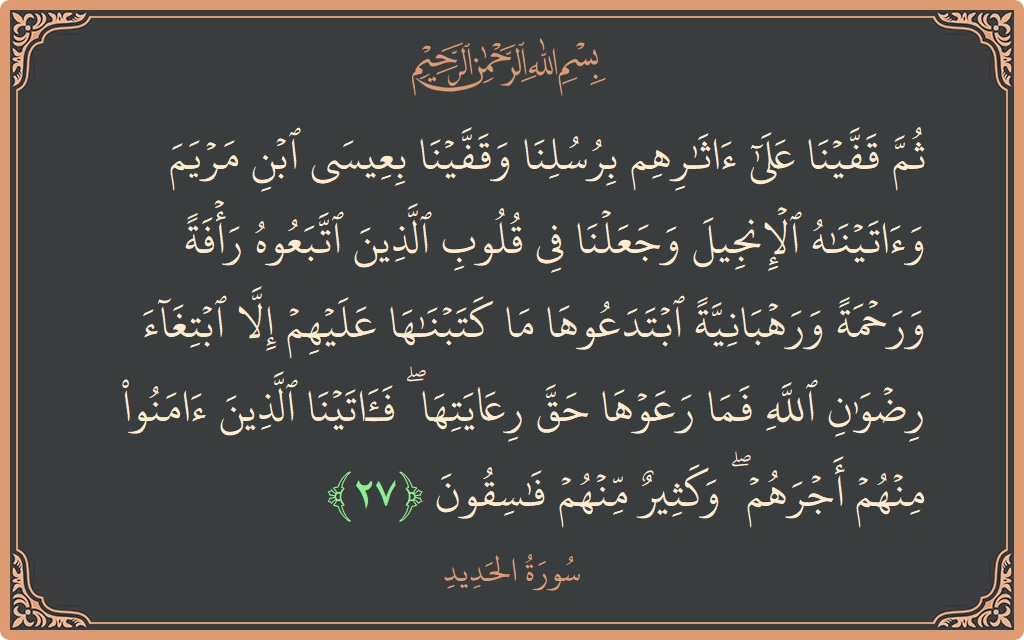 بِسْمِ اللَّهِ الرَّحْمَٰنِ الرَّحِيمِ
ثُمَّ قَفَّيْنَا عَلَىٰٓ ءَاثَـٰرِهِم بِرُسُلِنَا وَقَفَّيْنَا بِعِيسَى ٱبْنِ مَرْيَمَ
وَءَاتَيْنَـٰهُ ٱلْإِنجِيلَ وَجَعَلْنَا فِى قُلُوبِ ٱلَّذِينَ ٱتَّبَعُوهُ رَأْفَةً
وَرَحْمَةً وَرَهْبَانِيَّةً ٱبْتَدَعُوهَا مَا كَتَبْنَـٰهَا عَلَيْهِمْ إِلَّا ٱبْتِغَآءَ
رِضْوَٰنِ ٱللَّهِ فَمَا رَعَوْهَا حَقَّ رِعَايَتِهَا ۖ فَـَٔاتَيْنَا ٱلَّذِينَ ءَامَنُوا۟
مِنْهُمْ أَجْرَهُمْ ۖ وَكَثِيرٌ مِّنْهُمْ فَـٰسِقُونَ ﴿٢٧﴾
سُورَةُ الحَدِيدِ